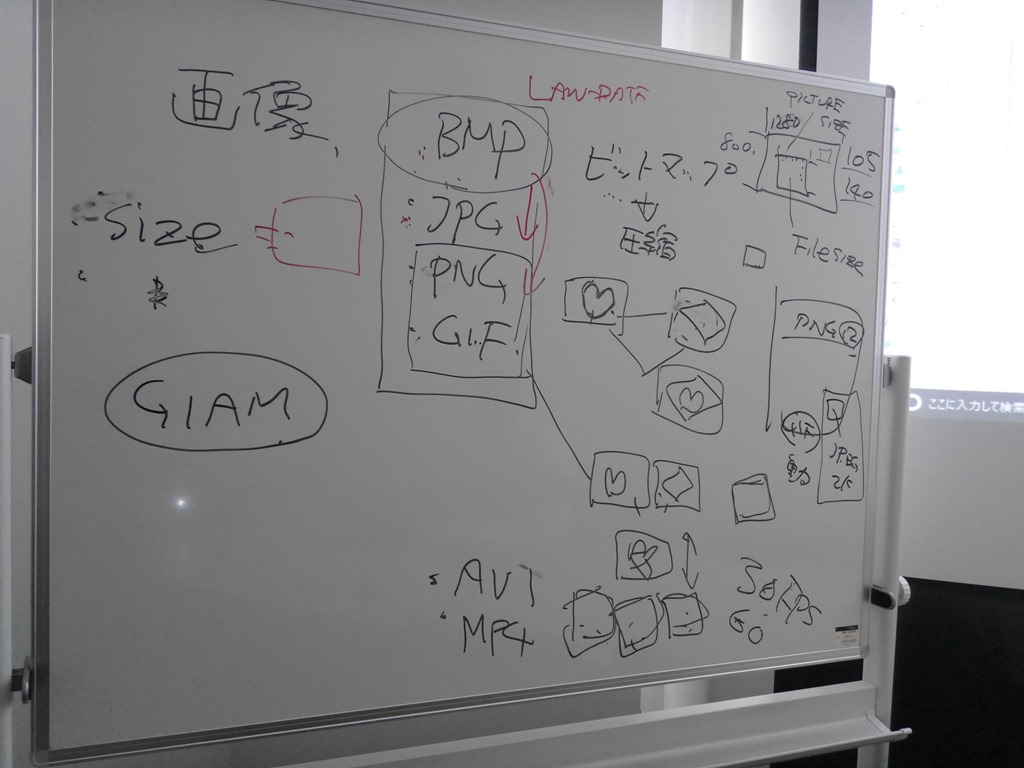 画像
Size
GIAM
LAW-DATA
BMP
JPG
PNG
GIF
ビットマップ
圧縮
PICTURE
SIZE
1280
800
105
140
File size
PNG
GIF
動
JPEG
AVI
MP4
30 FPS
60
ここに入力して検索